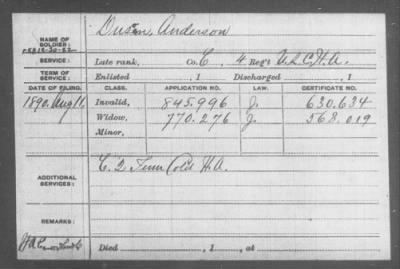 Duson, Anderson
NAME OF SOLDIER:
SERVICE: Late rank, Co. C, 4 Reg't U.S.C.H.A.
TERM OF SERVICE: Enlisted , 1 Discharged , 1
DATE OF FILING. CLASS. APPLICATION NO. LAW. CERTIFICATE NO.
1890. Aug 11. Invalid, 845.996 J. 630.634
Widow, 770.276 J. 568.019
Minor,
ADDITIONAL SERVICES: C. 2 Tenn Col'd H.A.
REMARKS:
Died , 1 , at